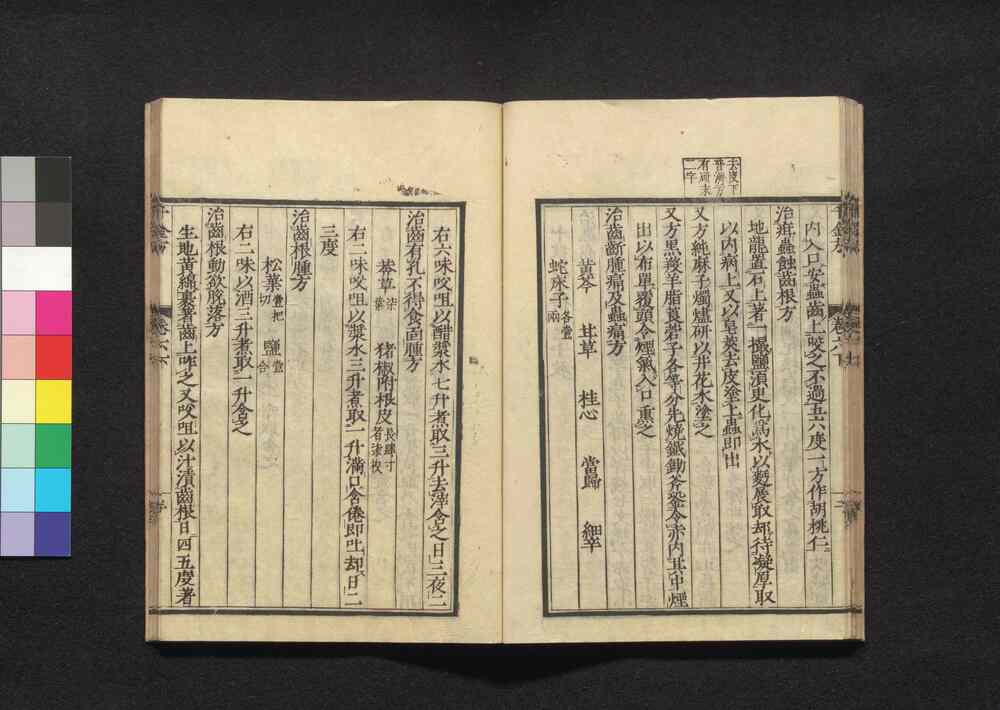 去度下
有頭末
二字
内入口安蟲齒上咬之不過五六度一方作胡桃仁
治疰蟲蝕齒根方
地龍置石上著一撮鹽須臾化爲水以麪展取却待凝厚取
以内病上又以皂莢去皮塗上蟲即出
又方純麻子燭燼研以井花水塗之
又方黑羖羊脂莨菪子各等分先燒鐵鋤斧銎令赤内其中煙
出以布單覆頭令煙氣入口熏之
治齒齗腫痛及蟲痛方
黄芩 甘草 桂心 當歸 細辛
蛇床子各壹兩
右六味㕮咀以醋漿水七升煮取三升去滓含之日三夜二
治齒有孔不得食面腫方
莽草 葉 猪椒附根皮長肆寸者柒枚
右二味㕮咀以漿水三升煮取一升滿口含倦即吐却日二
三度
治齒根腫方
松葉壹把切 鹽壹合
右二味以酒三升煮取一升含之
治齒根動欲脫落方
生地黄綿裹著齒上咋之又㕮咀以汁漬齒根日四五度著